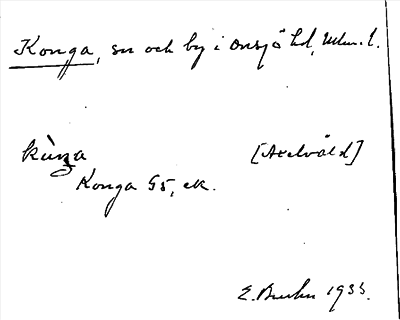 Konga, sn och by i Onsjö hd, Mlm. l.
kùŋa [Axelvåld]
Konga G5, ek.
E. 1933.